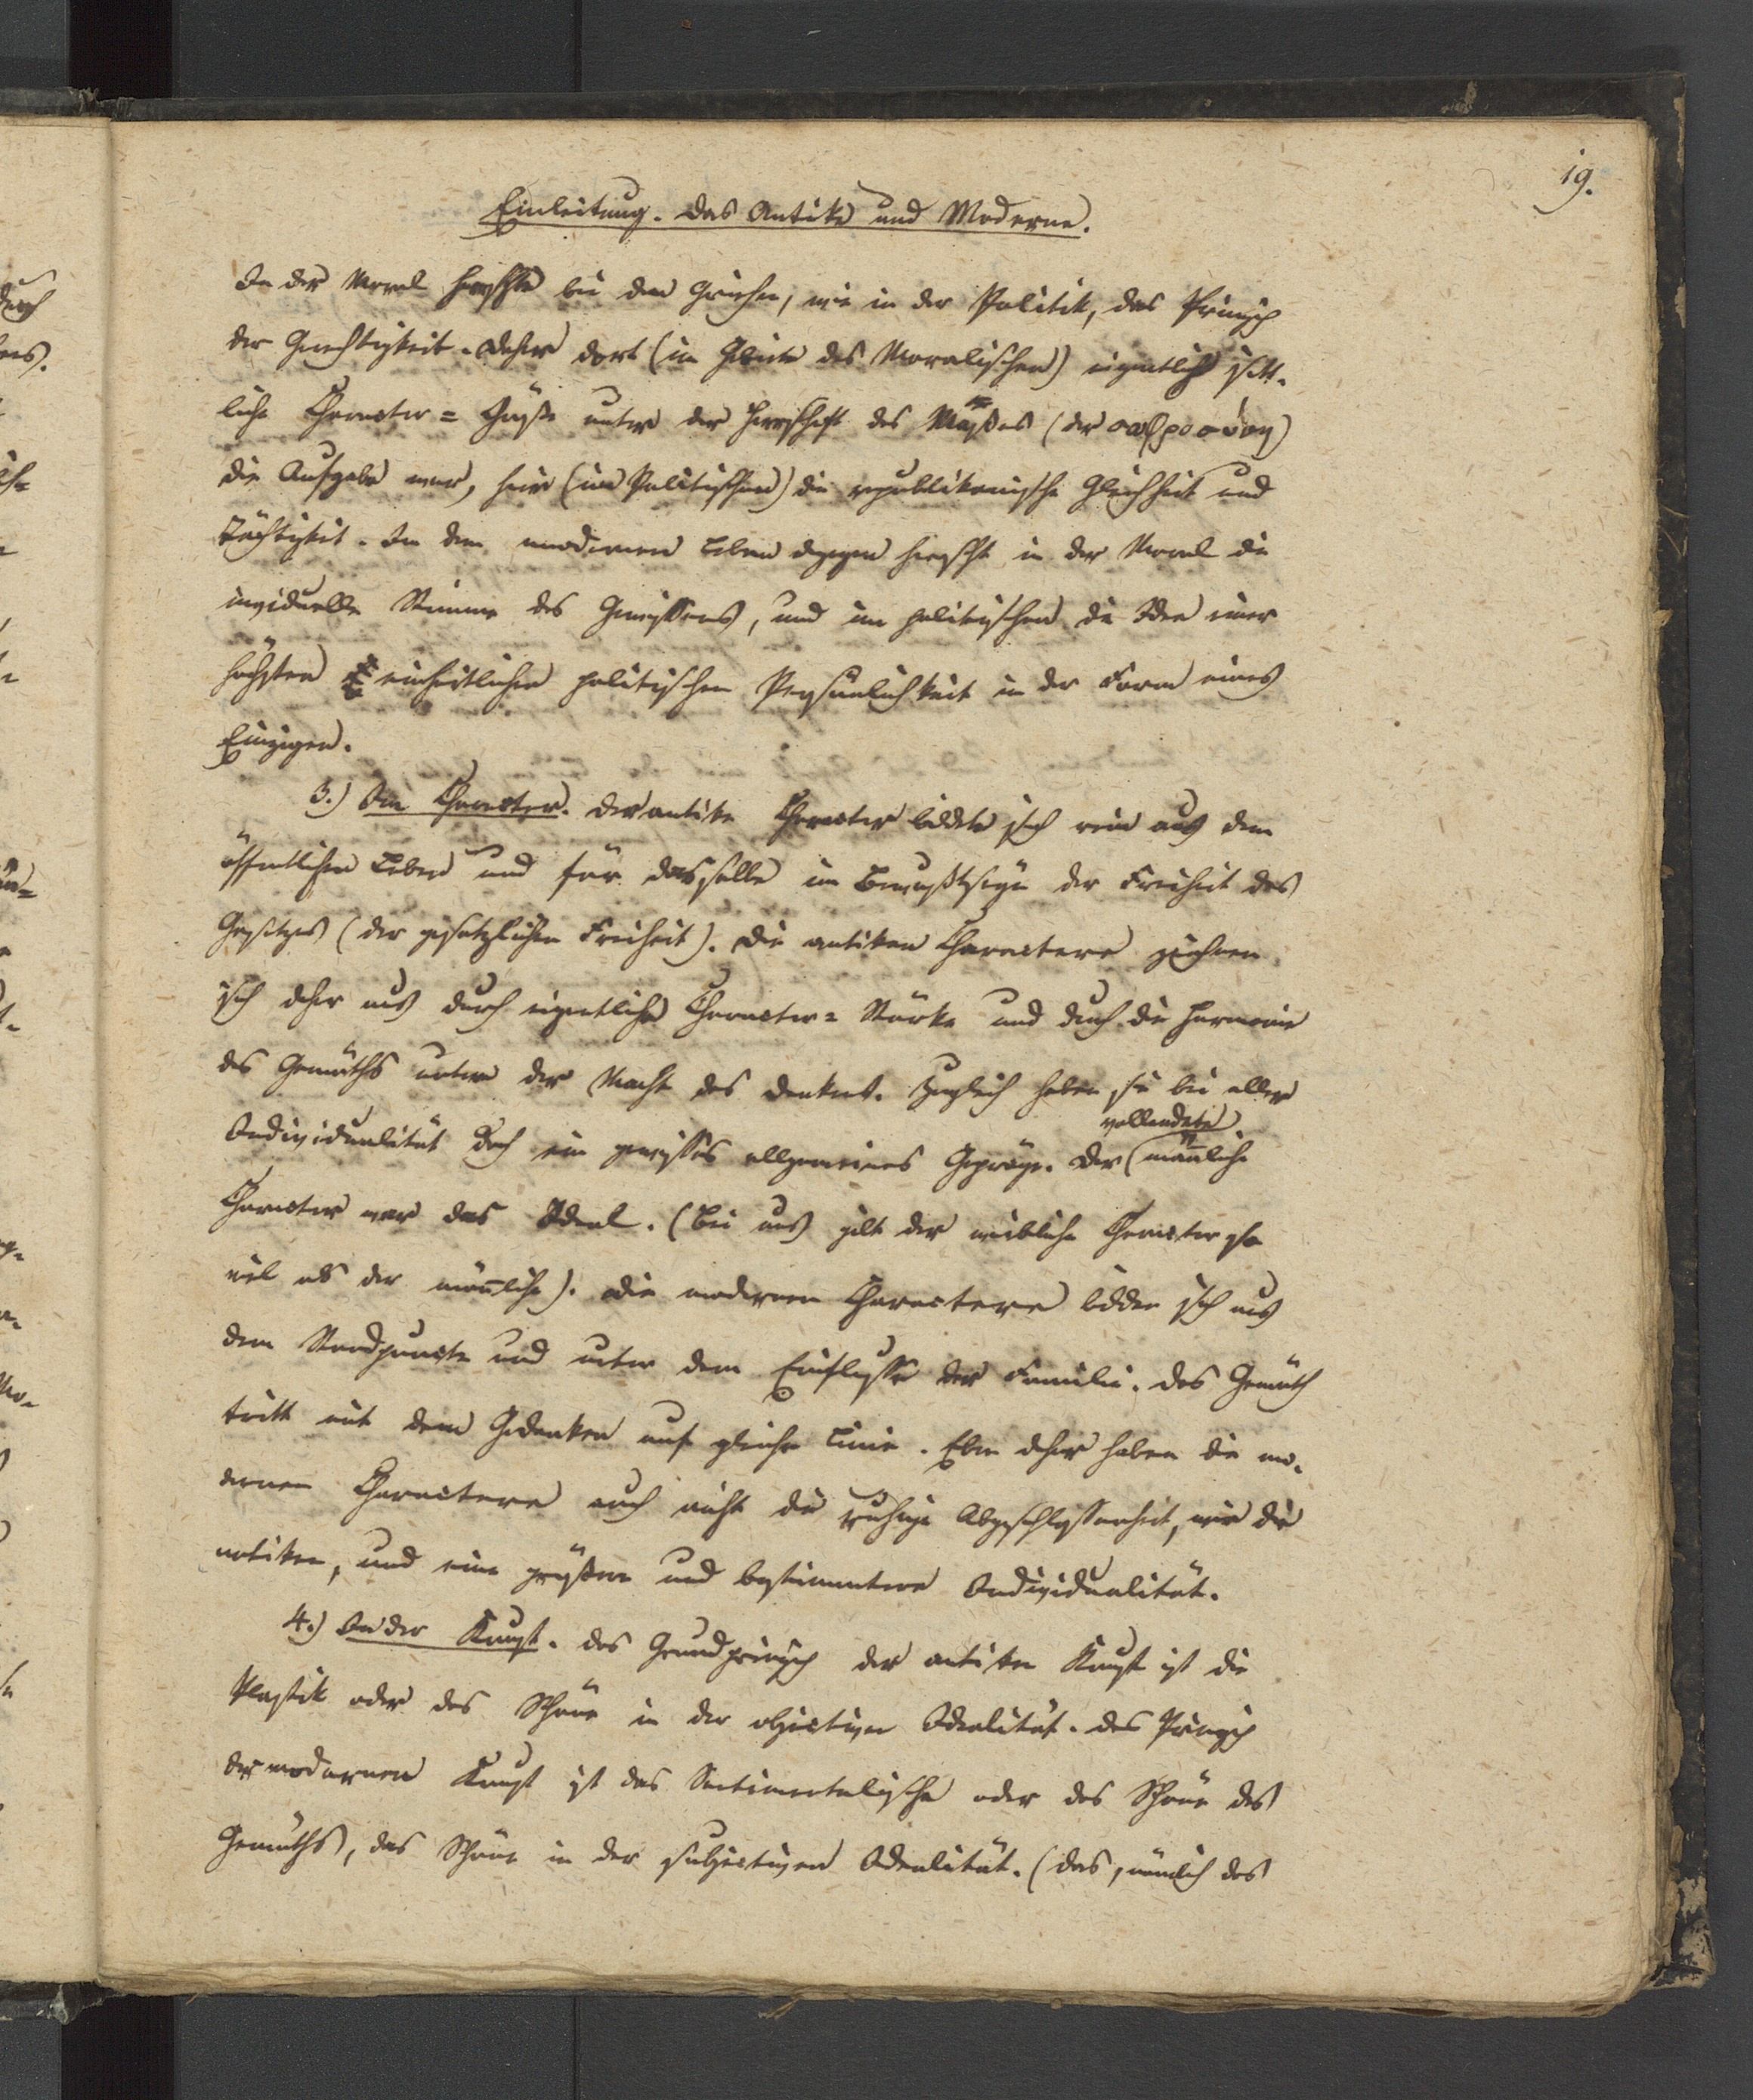 19.
Einleitung. Das Antike und Moderne.
In der Moral herrschte bei den Griechen, wie in der Politik, das Princip
der Gerechtigkeit. Daher dort (im Gebiete des Moralischen) eigentlich sitt-
liche Character=Größe unter der Herrschaft des Maßes (der σωφροσύνη)
die Aufgabe war, hier (im Politischen) die republikanische Gleichheit und
Tüchtigkeit. In dem modernen Leben dagegen herrscht in der Moral die
inviduelle Stimme des Gewissens, und im politischen die Idee einer
höchsten einheitlichen politischen Persönlichkeit in der Form eines
Einzigen.
3.) Im Character. Der antike Character bildete sich rein aus dem
öffentlichen Leben und für dasselbe im Bewußtseyn der Freiheit des
Gesetzes (der gesetzlichen Freiheit). Die antiken Charactere zeichnen
sich daher aus durch eigentliche Character=Stärke und durch die Harmonie
des Gemüths unter der Macht des Denkens. Zugleich haben sie bei aller
vollendete
Individualität doch ein gewisses allgemeines Gepräge. Der männliche
Character war das Ideal. (Bei uns gilt der weibliche Character so
viel als der männliche). Die modernen Charactere bilden sich aus
dem Standpuncte und unter dem Einflusse der Familie. Das Gemüth
tritt mit dem Gedanken auf gleiche Linie. Eben daher haben die mo-
dernen Charactere auch nicht die ruhige Abgeschlossenheit, wie die
antiken, und eine größere und bestimmtere Individualität.
4.) In der Kunst. Das Grundprincip der antiken Kunst ist die
Plastik oder das Schöne in der objectiven Idealität. Das Princip
der modernen Kunst ist das Sentimentalische oder das Schöne des
Gemüths, das Schöne in der subjectiven Idealität. (Das, nämlich das